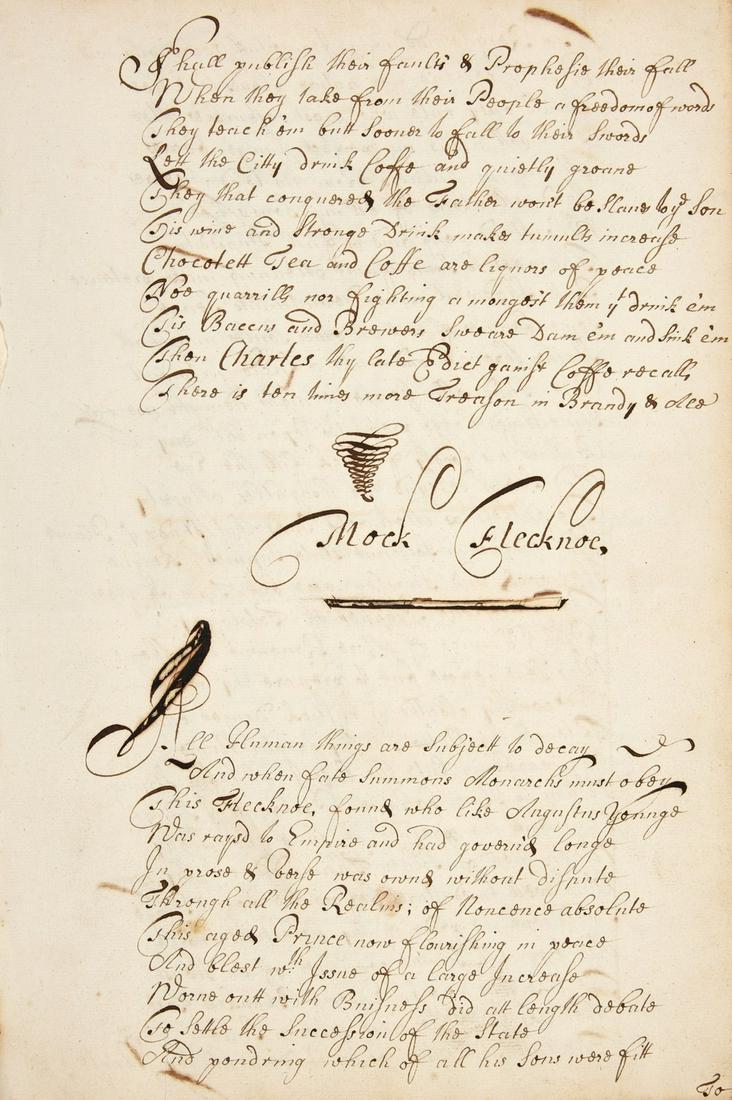 Shall publish their faults & Prophesie their fall
When they take from their People a freedom of words
They teach 'em butt Sooner to fall to their Swords
Lett the Citty drink Coffe and quietly groane
They that conquered the Father won't be Slaves to ye Son
Tis wine and Stronge Drink makes tumults increase
Chocolett Tea and Coffe are liquors of peace
Noe quarrills nor fighting amongest them yt drink 'em
Tis Baccus and Brewers Sweare Dam 'em and Sink 'em
Then Charles thy late Edict gainst Coffe recall
There is ten times more Treason in Brandy & Ale
Mock Flecknoe.
All Human things are Subject to decay
And when fate Summons Monarchs must obey
This Flecknoe, found who like Augustus Younge
Was rays'd to Empire and had govern'd longe
In prose & Verse was owned without dispute
Through all the Realms; of Noncence absolute
This aged Prince now flourishing in peace
And blest wth Issue of a large Increase
Worne outt with Buisness did att length debate
To Settle the Succession of the State
And pondring which of all his Sons were fitt
To